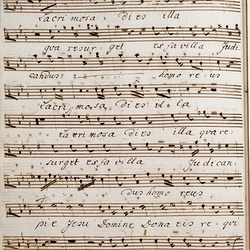 Lacri mosa, di es illa
qua resur get ex favilla Judi
candus homo re us
Lacri mosa, di es il la
Lacri mosa di es illa qua re
surget ex fa villa Judi can
dus homo reus
pie Jesu Domine Dona eis re qui